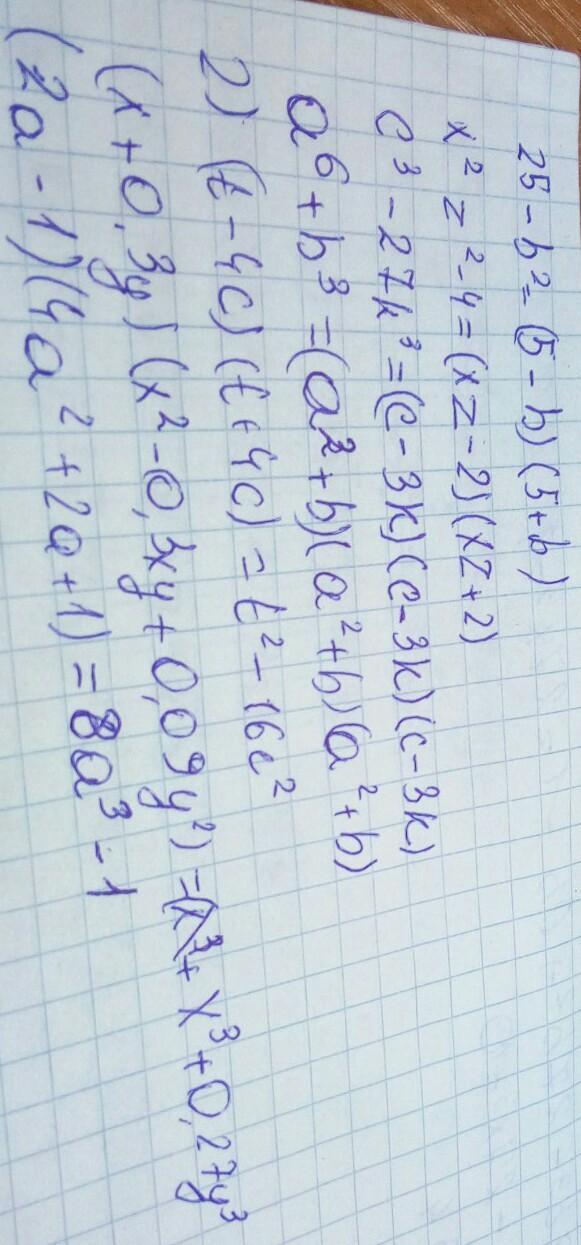 25 - b² = (5 - b)(5 + b)
x² z² - 4 = (xz - 2)(xz + 2)
c³ - 27k³ = (c - 3k)(c - 3k)(c - 3k)
a⁶ + b³ = (a² + b)(a² + b)(a² + b)
2) (t - 4c)(t + 4c) = t² - 16c²
(x + 0,3y)(x² - 0,3xy + 0,09y²) = x³ + 0,27y³
(2a - 1)(4a² + 2a + 1) = 8a³ - 1